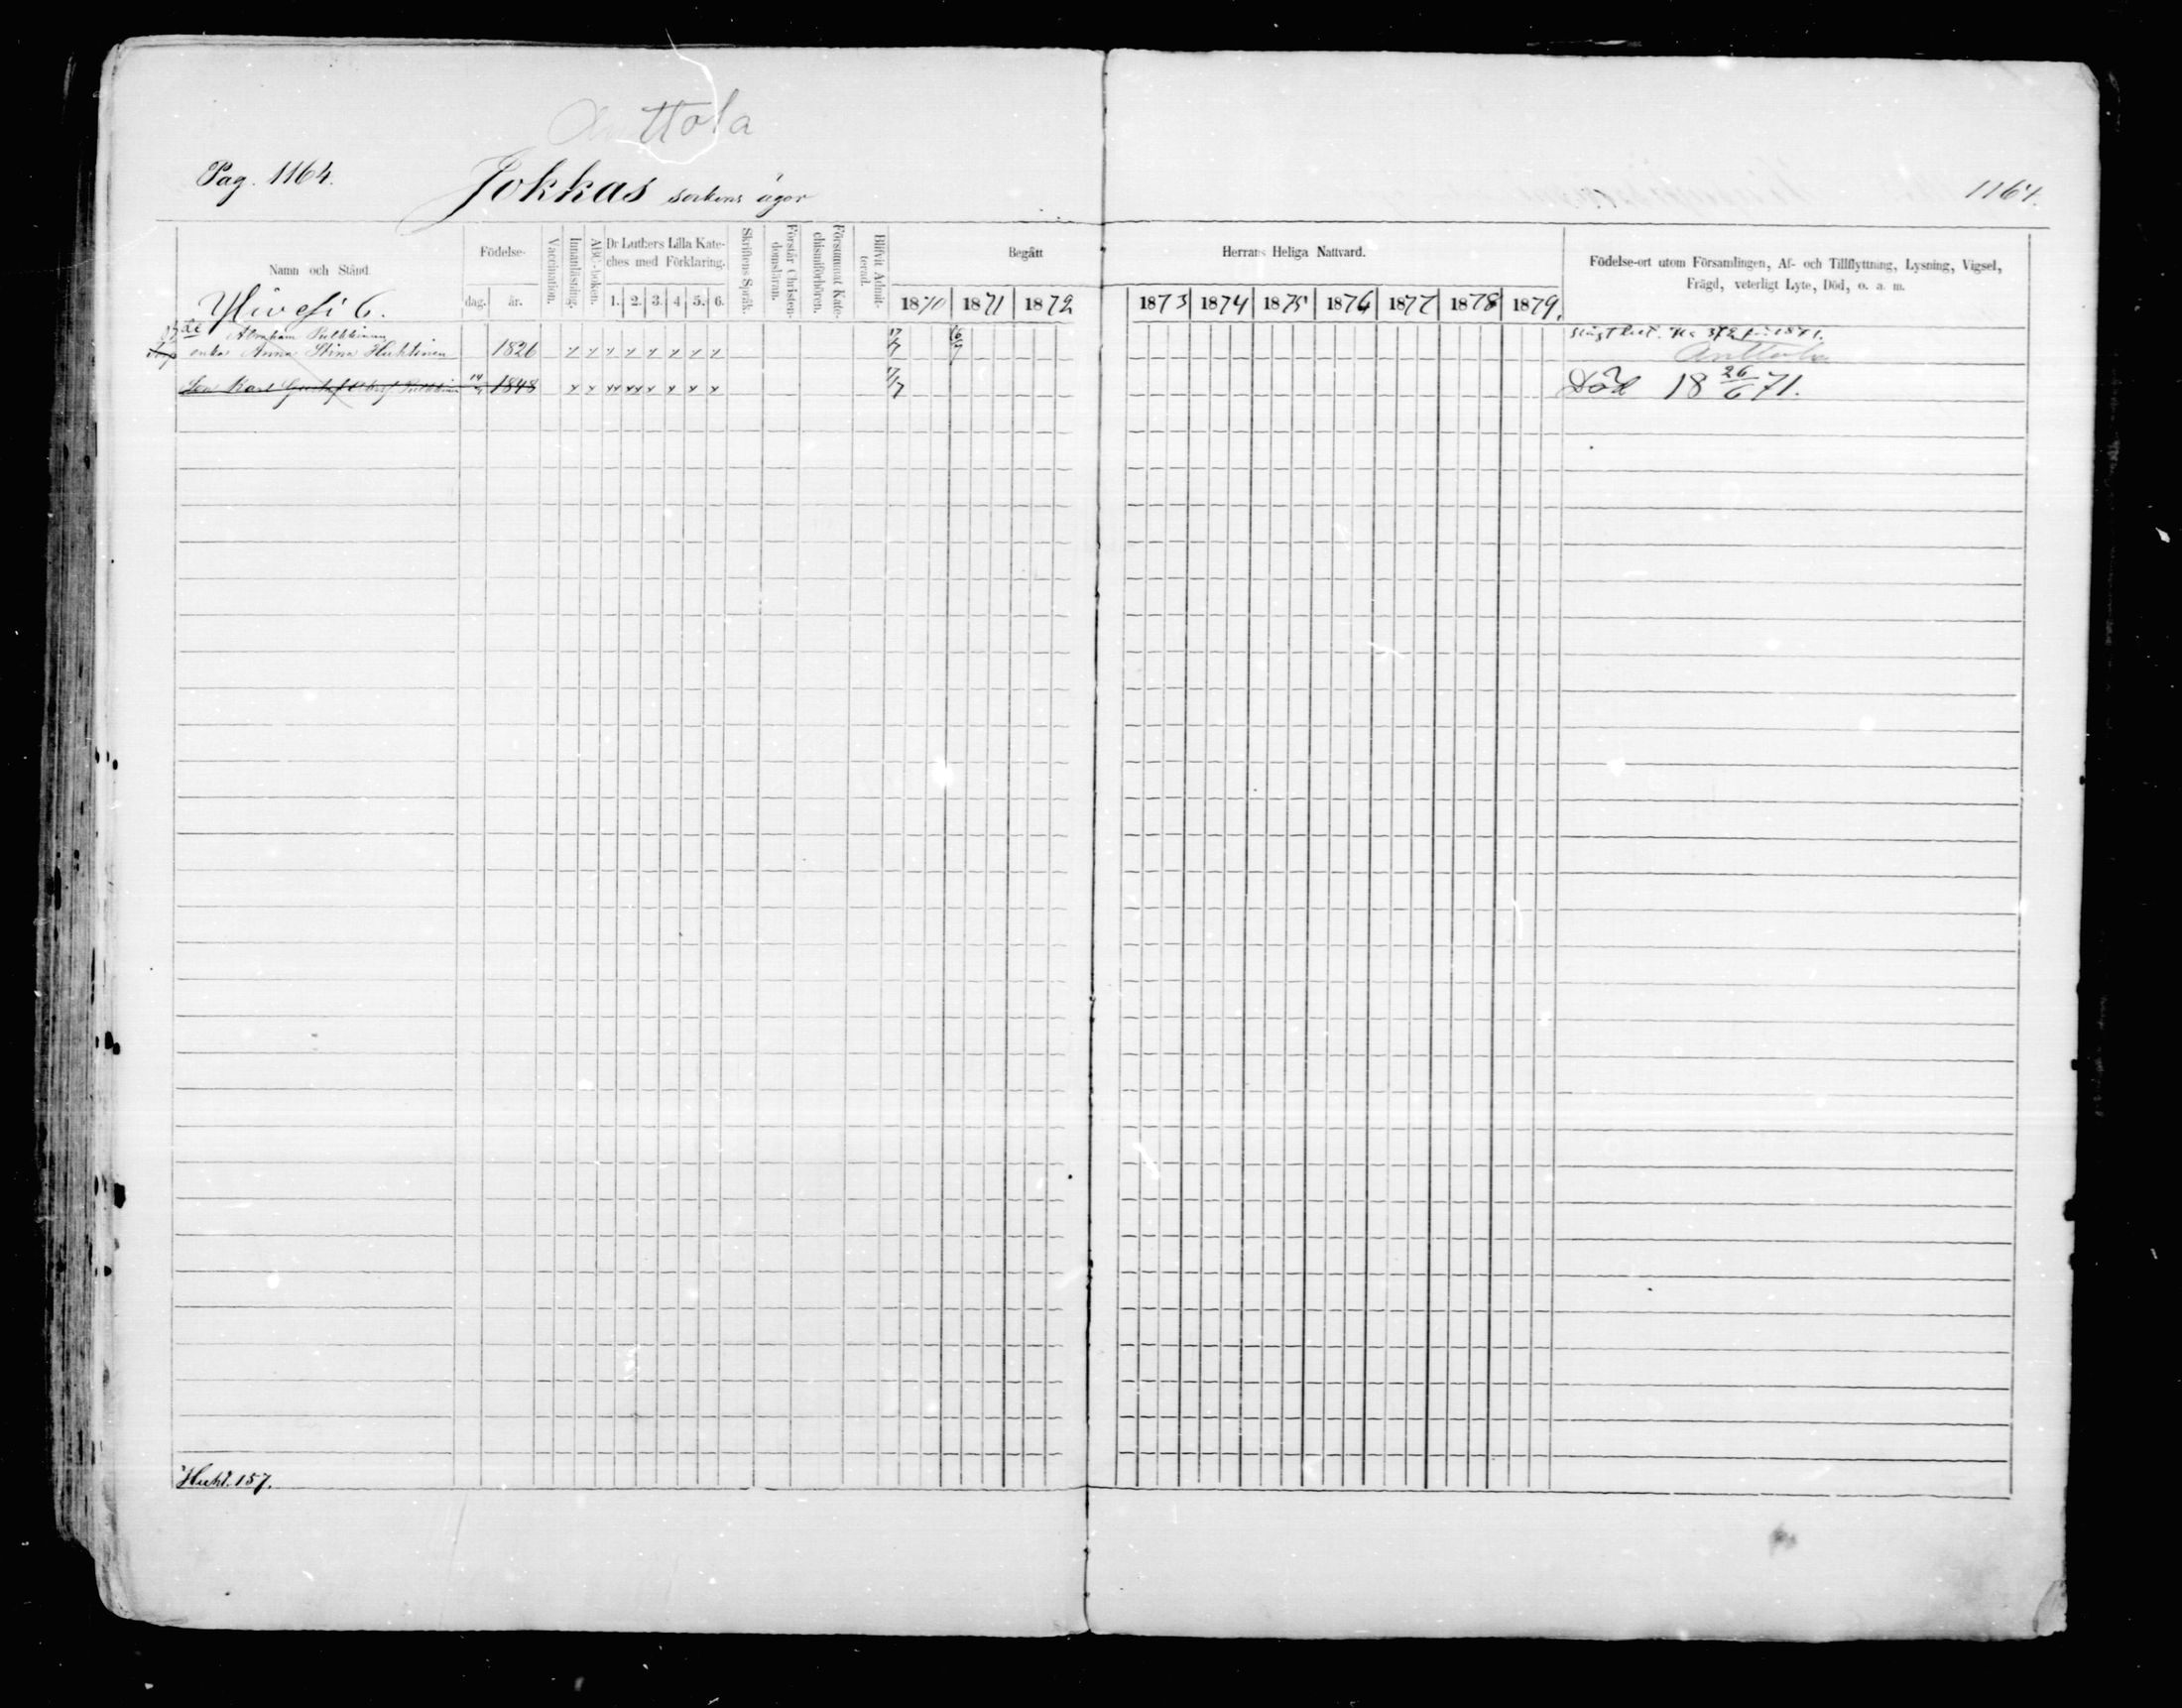 Anttola
Pag. 1164. Jokkas sockens ägor 1164.
Namn och Stånd. Födelse- dag. år. Vaccination. Innanläsning. ABC-boken. Dr Luthers Lilla Kateches med Förklaring. 1. 2. 3. 4 5. 6. Skriftens Språk. Förstår Christendomsläran. Försummat Katechismiförhören. Blifvit Admitterad. Begått Herrans Heliga Nattvard. Födelse-ort utom Församlingen, Af- och Tillflyttning, Lysning, Vigsel, Frägd, veterligt Lyte, Död, o. a. m.
1870 1871 1872 1873 1874 1875 1876 1877 1878 1879.
Ylivesi 6.
Abraham Pulkkinen
enka Anna Stina Huhtinen 1826 x x x x x x x x
Anttola
Son Karl Gustaf Pulkkinen 1848 x x xx xx x x x x Död 18 26/6 71.
Huht. 157.